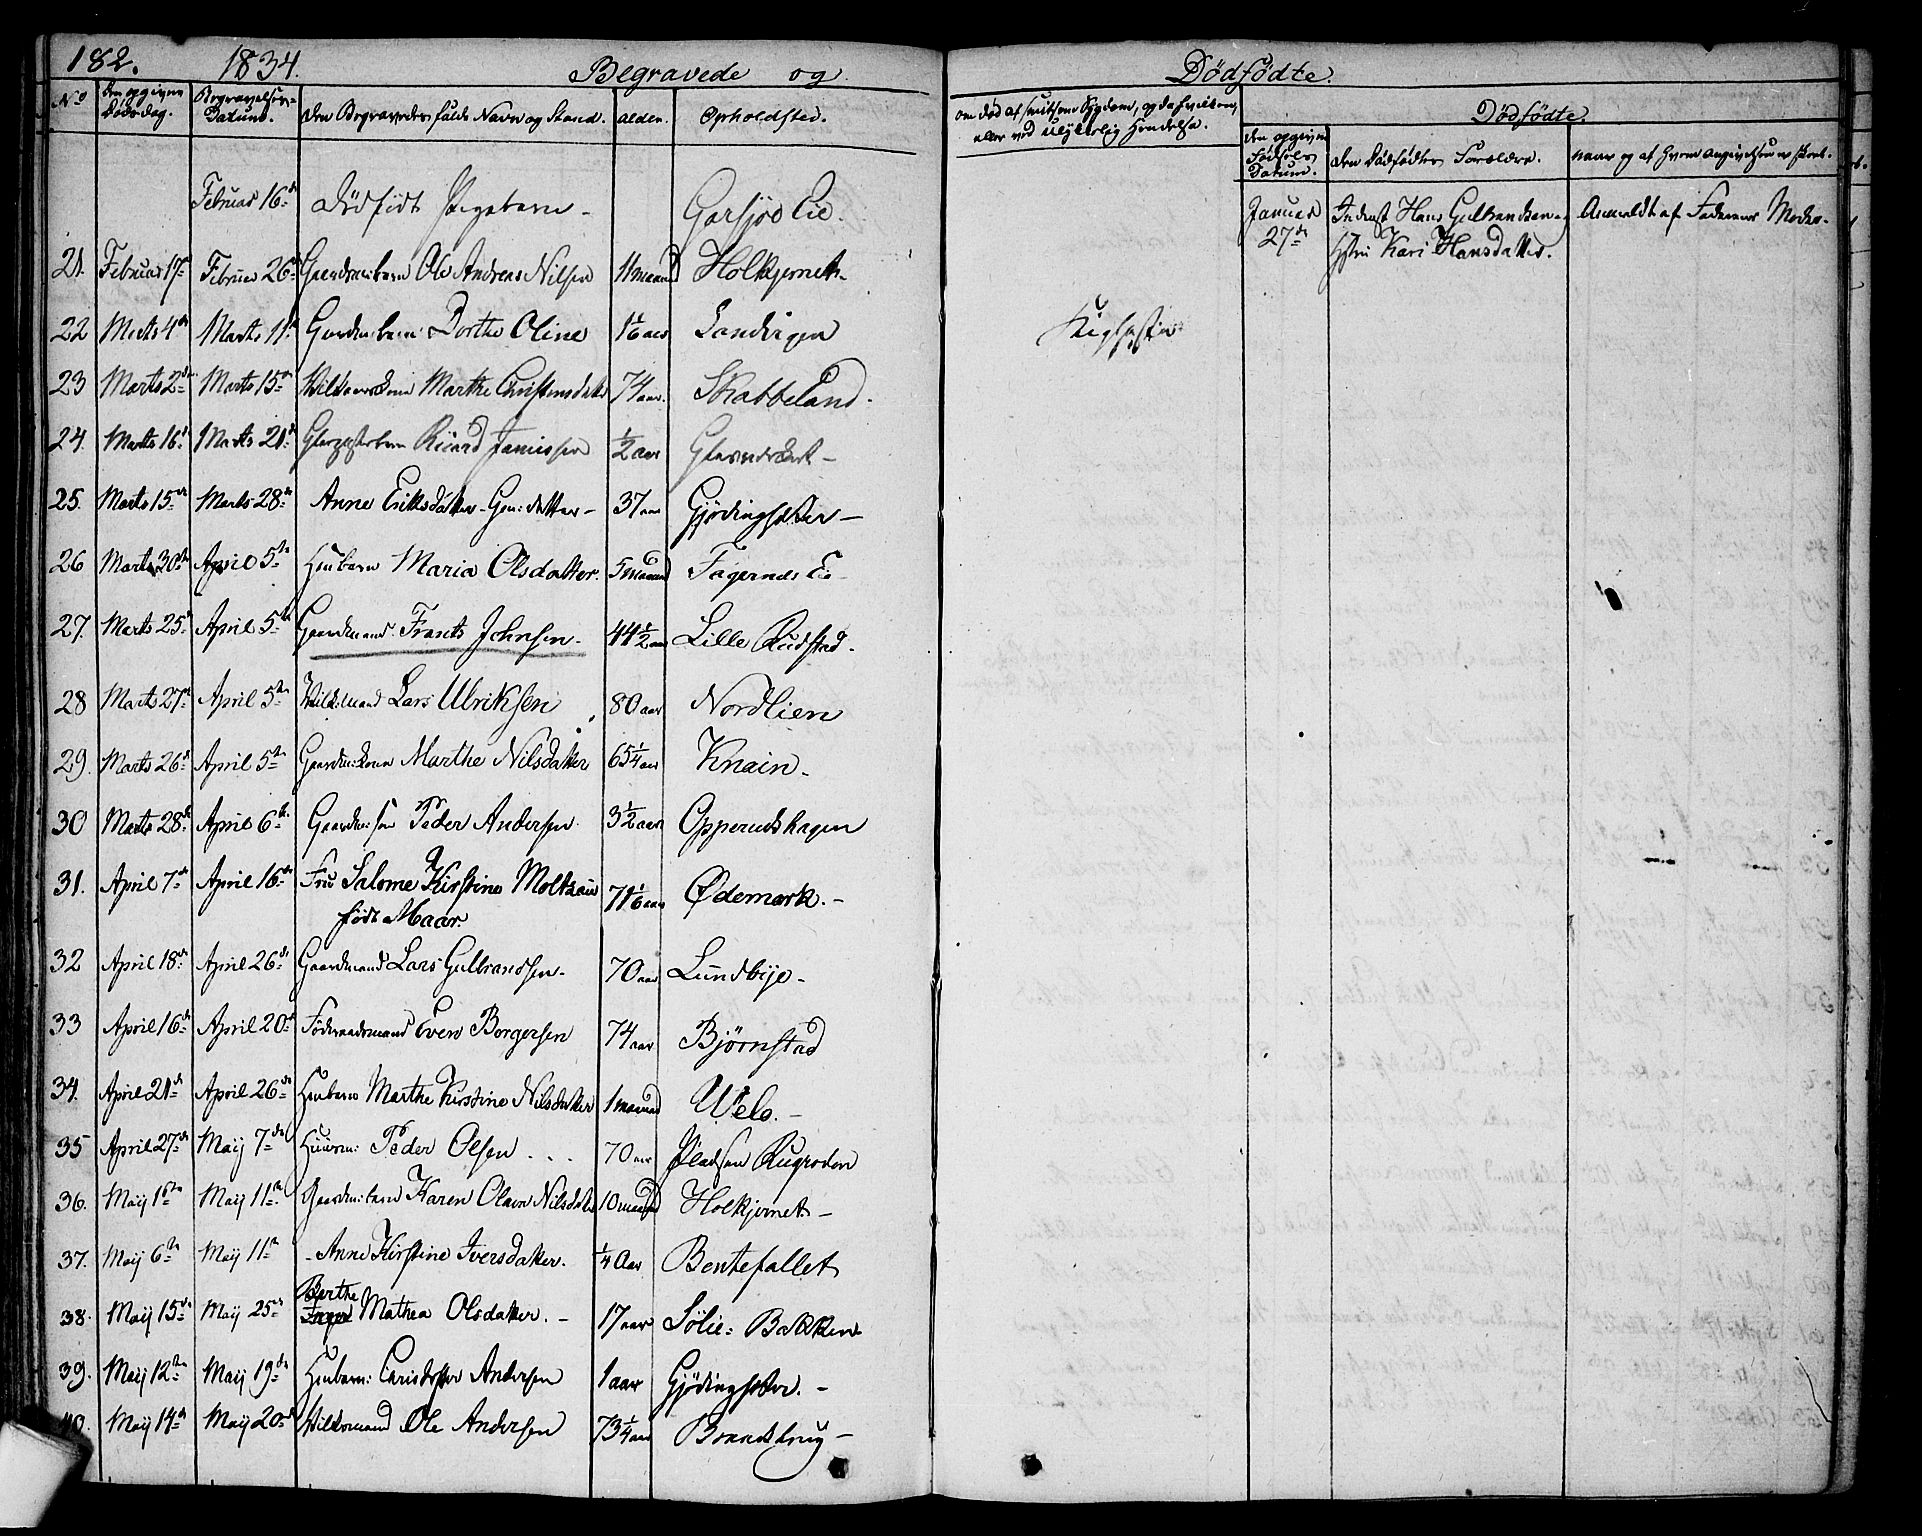 182. 1834. Begravede og Dødfødte.
No Den opgivne Dødsdag. Begravelses-Datum. Den Begravedes fulde Navn og Stand. Alder. Opholdsted. om død af smitsom Sygdom, og da hvilken, eller ved ulykkelig Hendelse. Dødfødte.
Den opgivne Fødsels Datum. Den Dødfødtes Forældre. naar og af hvem Angivelsen er skeet.
Februar 16de Dødfødt Pigebarn - Garsjøe Eie. Januar 27de Inderst Hans Gulbrandsen og Hstru Kari Hansdatter. Anmeldt af Faderens Moder.
21. Februar 17de Februar 26de Gaardm:barn Ole Andreas Nilsen 11 maaned Holkjernet
22 Marts 4de Marts 11te Gaardm:barn Dorthe Oline 1 1/6 aar Sandvigen Kighoste
23 Marts 2den Marts 15de Marthe Christensdatter 74 aar. Skabbeland.
24. Marts 16de Marts 21de Ricard 1/2 aar Glasværket -
25. Marts 15de Marts 28de Anne Eriksdatter - Gm: datter - 37 aar Gjødingsæter -
26 Marts 30te April 5te Husbarn Maria Olsdatter. 5 maaned Fagernæs Eie -
27. Marts 25de April 5te Gaardmand Frants Johnsen. 44 1/2 aar Lille Rudstad.
28 Marts 27de April 5te Vilkmand Lars Ulriksen 80 aar Nordlien
29. Marts 26de April 5te Gaardm:kone Marthe Nilsdatter 65 1/4 aar Knain.
30 Marts 28de April 6te Gaardm:søn Peder Andersen 3 1/2 aar Opperudshagen
31. April 7de April 16de Fru Salome Kirstine Moltzau født Maar. 71 1/6 aar Ødemark. -
32 April 18de April 26de Gaardmand Lars Gulbrandsen - 70 aar Lundbye -
33 April 16de April 20de Føderaadsmand Even Borgersen 74 aar Bjørnstad
34. April 21de April 26de Husbarn Marthe Kirstine Nilsdatter 1 maaned Welo. -
35 April 27de Maij 7de Huusm: Peder Olsen . . . 70 aar Pladsen Rugroden
36. Maij 1ste Maij 11te Gaardm:barn Karen Olava Nilsdatter 10 maaned Holkjernet -
37. Maij 6te Maij 11te - Anne Kirstine Iversdatter. 1/4 Aar Bentefallet
38. Maij 15de Maij 25de Berthe Mathea Olsdatter. - 17 aar Sølie: Bakken
39. Maij 12te Maij 19de Husbarn: Christopher Andersen 1 aar Gjødingsæter. -
40. Maij 14de Maij 20de Vilkormand Ole Andersen 73 1/4 aar Brandstrug -